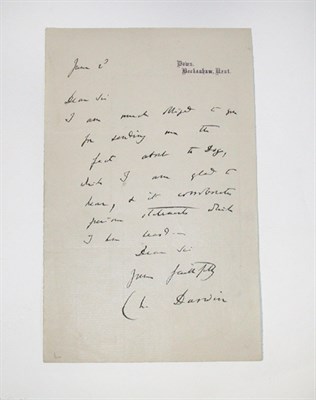 Down,
Beckenham, Kent.
June 2
Dear Sir
I am much obliged to you
for sending me the
fact about the Dogs,
which I am glad to
hear, & it corroborates
previous statements which
I have heard.—
Dear Sir
yours faithfully
Ch. Darwin